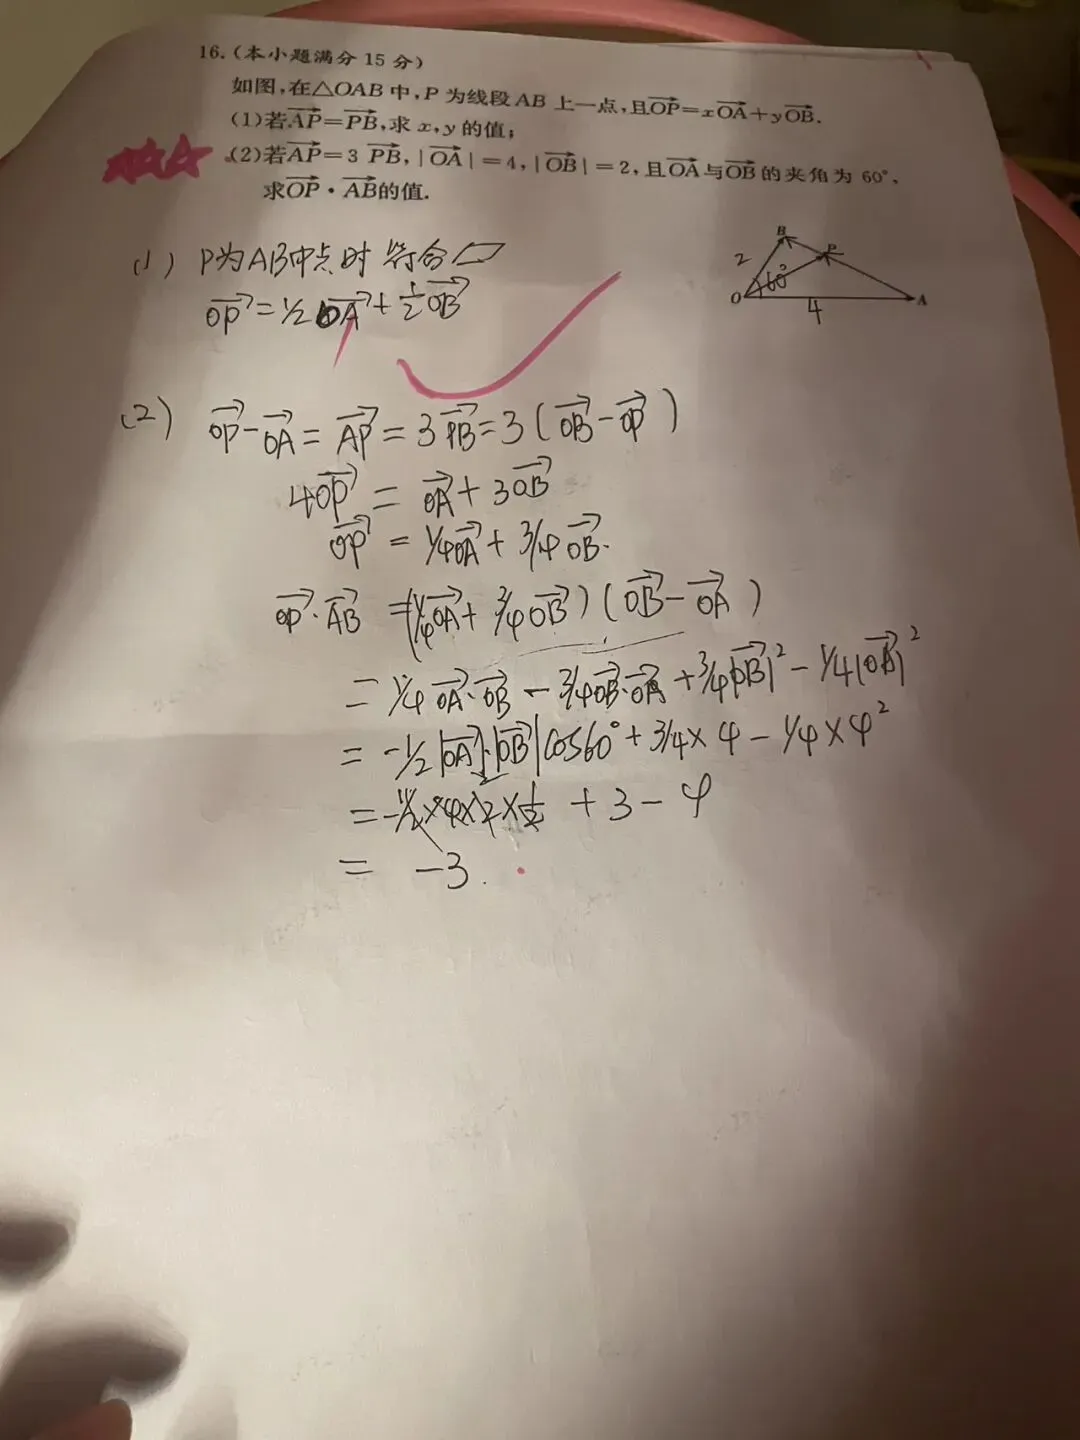 16.(本小题满分 15 分)
如图,在△OAB 中,P 为线段 AB 上一点,且$\overrightarrow{OP}$=x$\overrightarrow{OA}$+y$\overrightarrow{OB}$.
(1)若$\overrightarrow{AP}$=$\overrightarrow{PB}$,求 x,y 的值;
(2)若$\overrightarrow{AP}$=3 $\overrightarrow{PB}$,|$\overrightarrow{OA}$|=4,|$\overrightarrow{OB}$|=2,且$\overrightarrow{OA}$与$\overrightarrow{OB}$的夹角为 60°,
求$\overrightarrow{OP}$·$\overrightarrow{AB}$的值.
B
P
2
60°
O
A
4
(1) P为AB中点时 符合▱
$\overrightarrow{OP}$=1/2 $\overrightarrow{OA}$+$\frac{1}{2}$$\overrightarrow{OB}$
(2) $\overrightarrow{OP}$-$\overrightarrow{OA}$=$\overrightarrow{AP}$=3$\overrightarrow{PB}$=3($\overrightarrow{OB}$-$\overrightarrow{OP}$)
4$\overrightarrow{OP}$=$\overrightarrow{OA}$+3$\overrightarrow{OB}$
$\overrightarrow{OP}$=1/4$\overrightarrow{OA}$+3/4$\overrightarrow{OB}$.
$\overrightarrow{OP}$·$\overrightarrow{AB}$=(1/4$\overrightarrow{OA}$+3/4$\overrightarrow{OB}$)($\overrightarrow{OB}$-$\overrightarrow{OA}$)
=1/4$\overrightarrow{OA}$·$\overrightarrow{OB}$-3/4$\overrightarrow{OB}$·$\overrightarrow{OA}$+3/4|$\overrightarrow{OB}$|²-1/4|$\overrightarrow{OA}$|²
=-1/2|$\overrightarrow{OA}$|·|$\overrightarrow{OB}$|cos60°+3/4×4-1/4×4²
=-1/2×4×2×1/2+3-4
=-3.